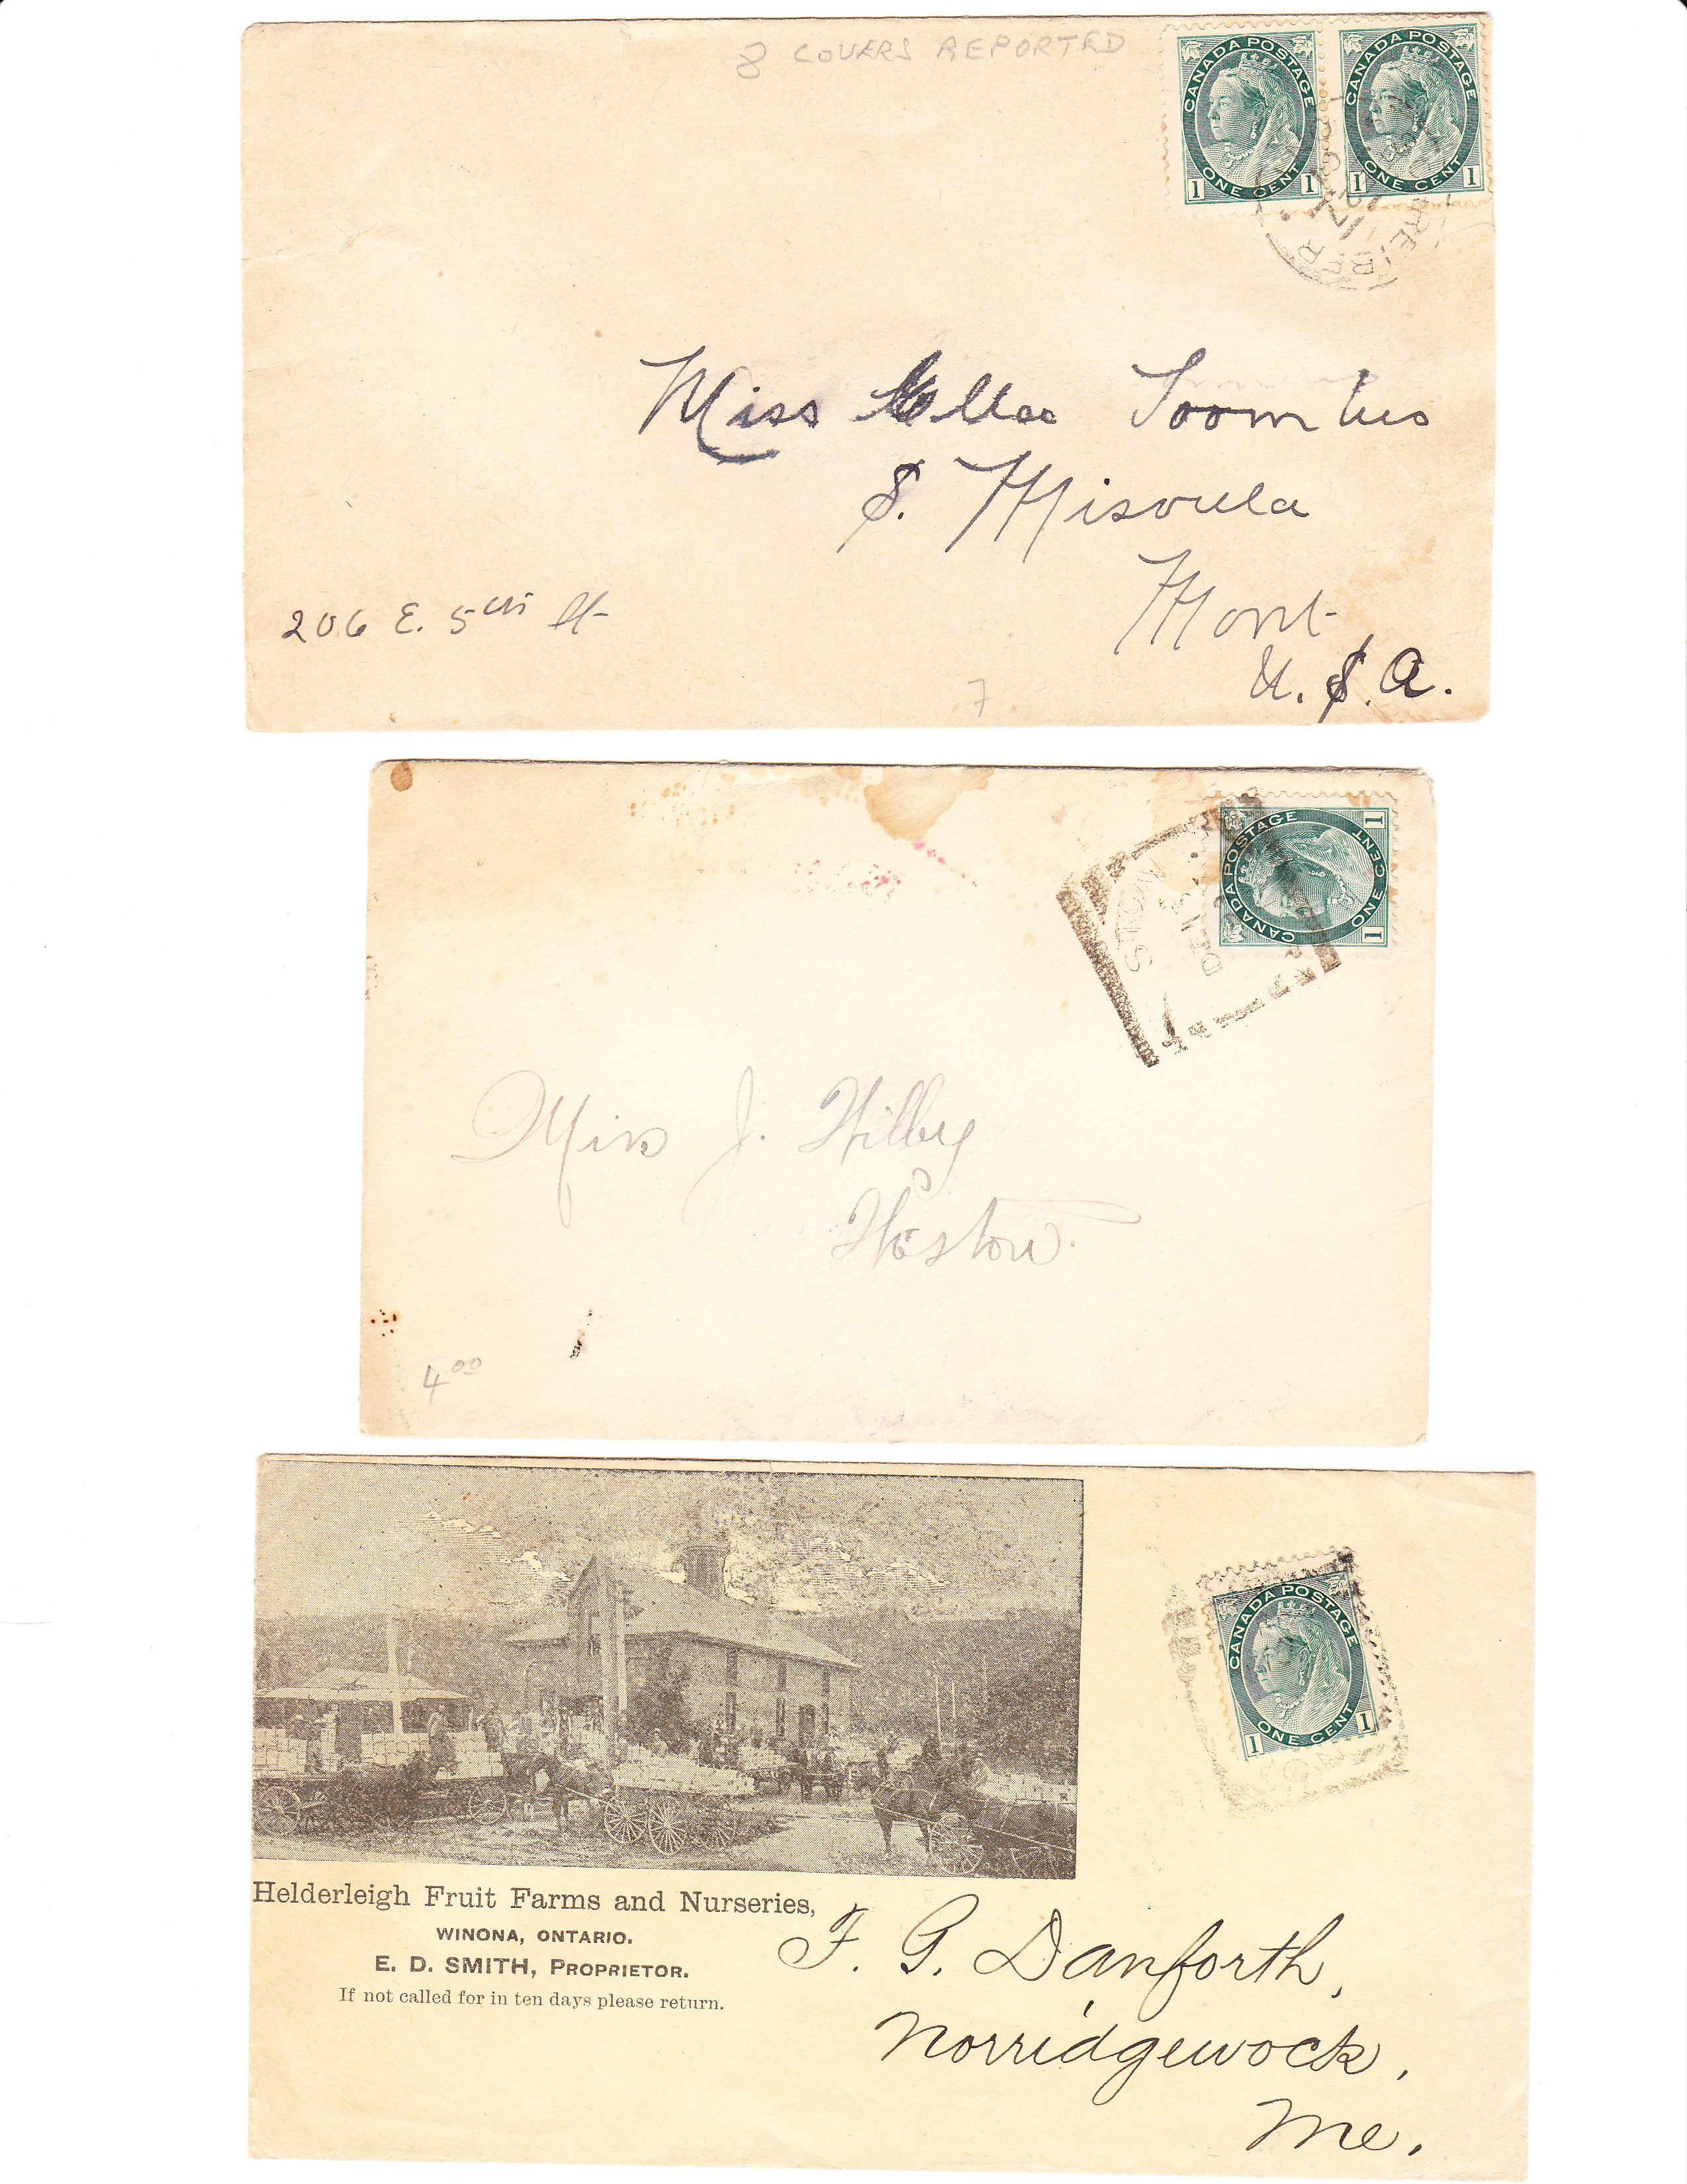 8 COVERS REPORTED
CANADA POSTAGE
1 ONE CENT 1
CANADA POSTAGE
1 ONE CENT 1
REIBER
Miss Ella Toombs
S. Misoula
Mont
U. S. A.
206 E. 5th St
7
CANADA POSTAGE
1 ONE CENT 1
STON
DE 15
Miss J. Hilley
Weston
4 00
CANADA POSTAGE
1 ONE CENT 1
Helderleigh Fruit Farms and Nurseries,
WINONA, ONTARIO.
E. D. SMITH, PROPRIETOR.
If not called for in ten days please return.
F. G. Danforth,
Norridgewock,
Me.